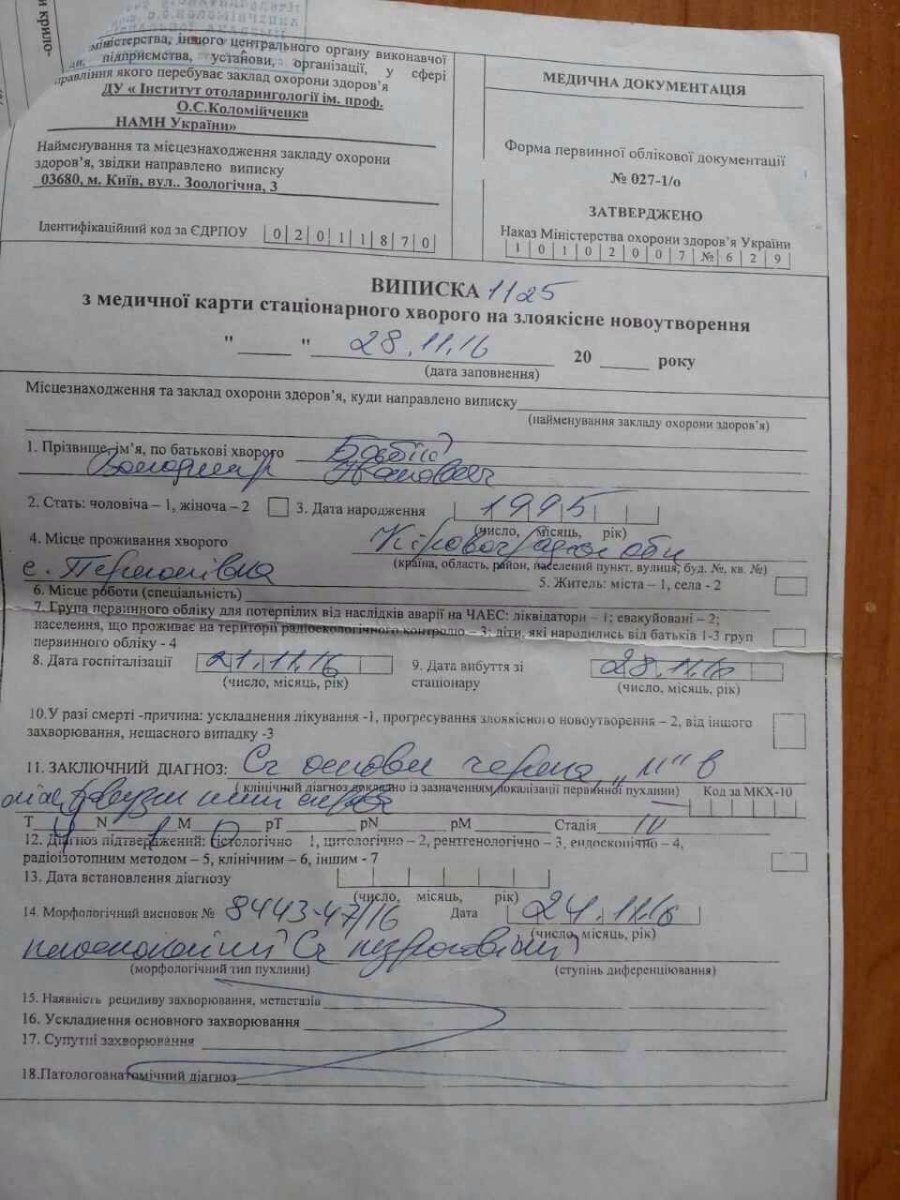 и крило-
міністерства, іншого центрального органу виконавчої
підприємства, установи, організації, у сфері
равління якого перебуває заклад охорони здоров'я
ДУ « Інститут отоларингології ім. проф.
О.С.Коломійченка
НАМН України»
Найменування та місцезнаходження закладу охорони
здоров'я, звідки направлено виписку
03680, м. Київ, вул.. Зоологічна, 3
Ідентифікаційний код за ЄДРПОУ 0 2 0 1 1 8 7 0
МЕДИЧНА ДОКУМЕНТАЦІЯ
Форма первинної облікової документації
№ 027-1/о
ЗАТВЕРДЖЕНО
Наказ Міністерства охорони здоров'я України
1 0 1 0 2 0 0 7 № 6 2 9
ВИПИСКА 1125
з медичної карти стаціонарного хворого на злоякісне новоутворення
" " 28.11.16 20 року
(дата заповнення)
Місцезнаходження та заклад охорони здоров'я, куди направлено виписку
(найменування закладу охорони здоров'я)
1. Прізвище, ім'я, по батькові хворого
Володимир Іванович
2. Стать: чоловіча – 1, жіноча – 2 3. Дата народження 1995
(число, місяць, рік)
4. Місце проживання хворого Кіровоградська обл
(країна, область, район, населений пункт, вулиця, буд. №, кв. №)
с.
5. Житель: міста – 1, села - 2
6. Місце роботи (спеціальність)
7. Група первинного обліку для потерпілих від наслідків аварії на ЧАЕС: ліквідатори – 1; евакуйовані – 2;
населення, що проживає на території радіоекологічного контролю – 3; діти, які народились від батьків 1-3 груп
первинного обліку - 4
8. Дата госпіталізації 21.11.16 9. Дата вибуття зі 28.11.16
(число, місяць, рік) стаціонару (число, місяць, рік)
10.У разі смерті -причина: ускладнення лікування -1, прогресування злоякісного новоутворення – 2, від іншого
захворювання, нещасного випадку -3
11. ЗАКЛЮЧНИЙ ДІАГНОЗ: Cr основи черепа
( клінічний діагноз докладно із зазначенням локалізації первинної пухлини) Код за МКХ-10
T 4 N 1 M 0 pT pN pM Стадія IV
12. Діагноз підтверджений: гістологічно 1, цитологічно – 2, рентгенологічно – 3, ендоскопічно – 4,
радіоізотопним методом – 5, клінічним – 6, іншим - 7
13. Дата встановлення діагнозу
(число, місяць, рік)
14. Морфологічний висновок № 8443-47/16 Дата 24.11.16
(число, місяць, рік)
Cr
(морфологічний тип пухлини) (ступінь диференціювання)
15. Наявність рецидиву захворювання, метастазів
16. Ускладнення основного захворювання
17. Супутні захворювання
18.Патологоанатомічний діагноз